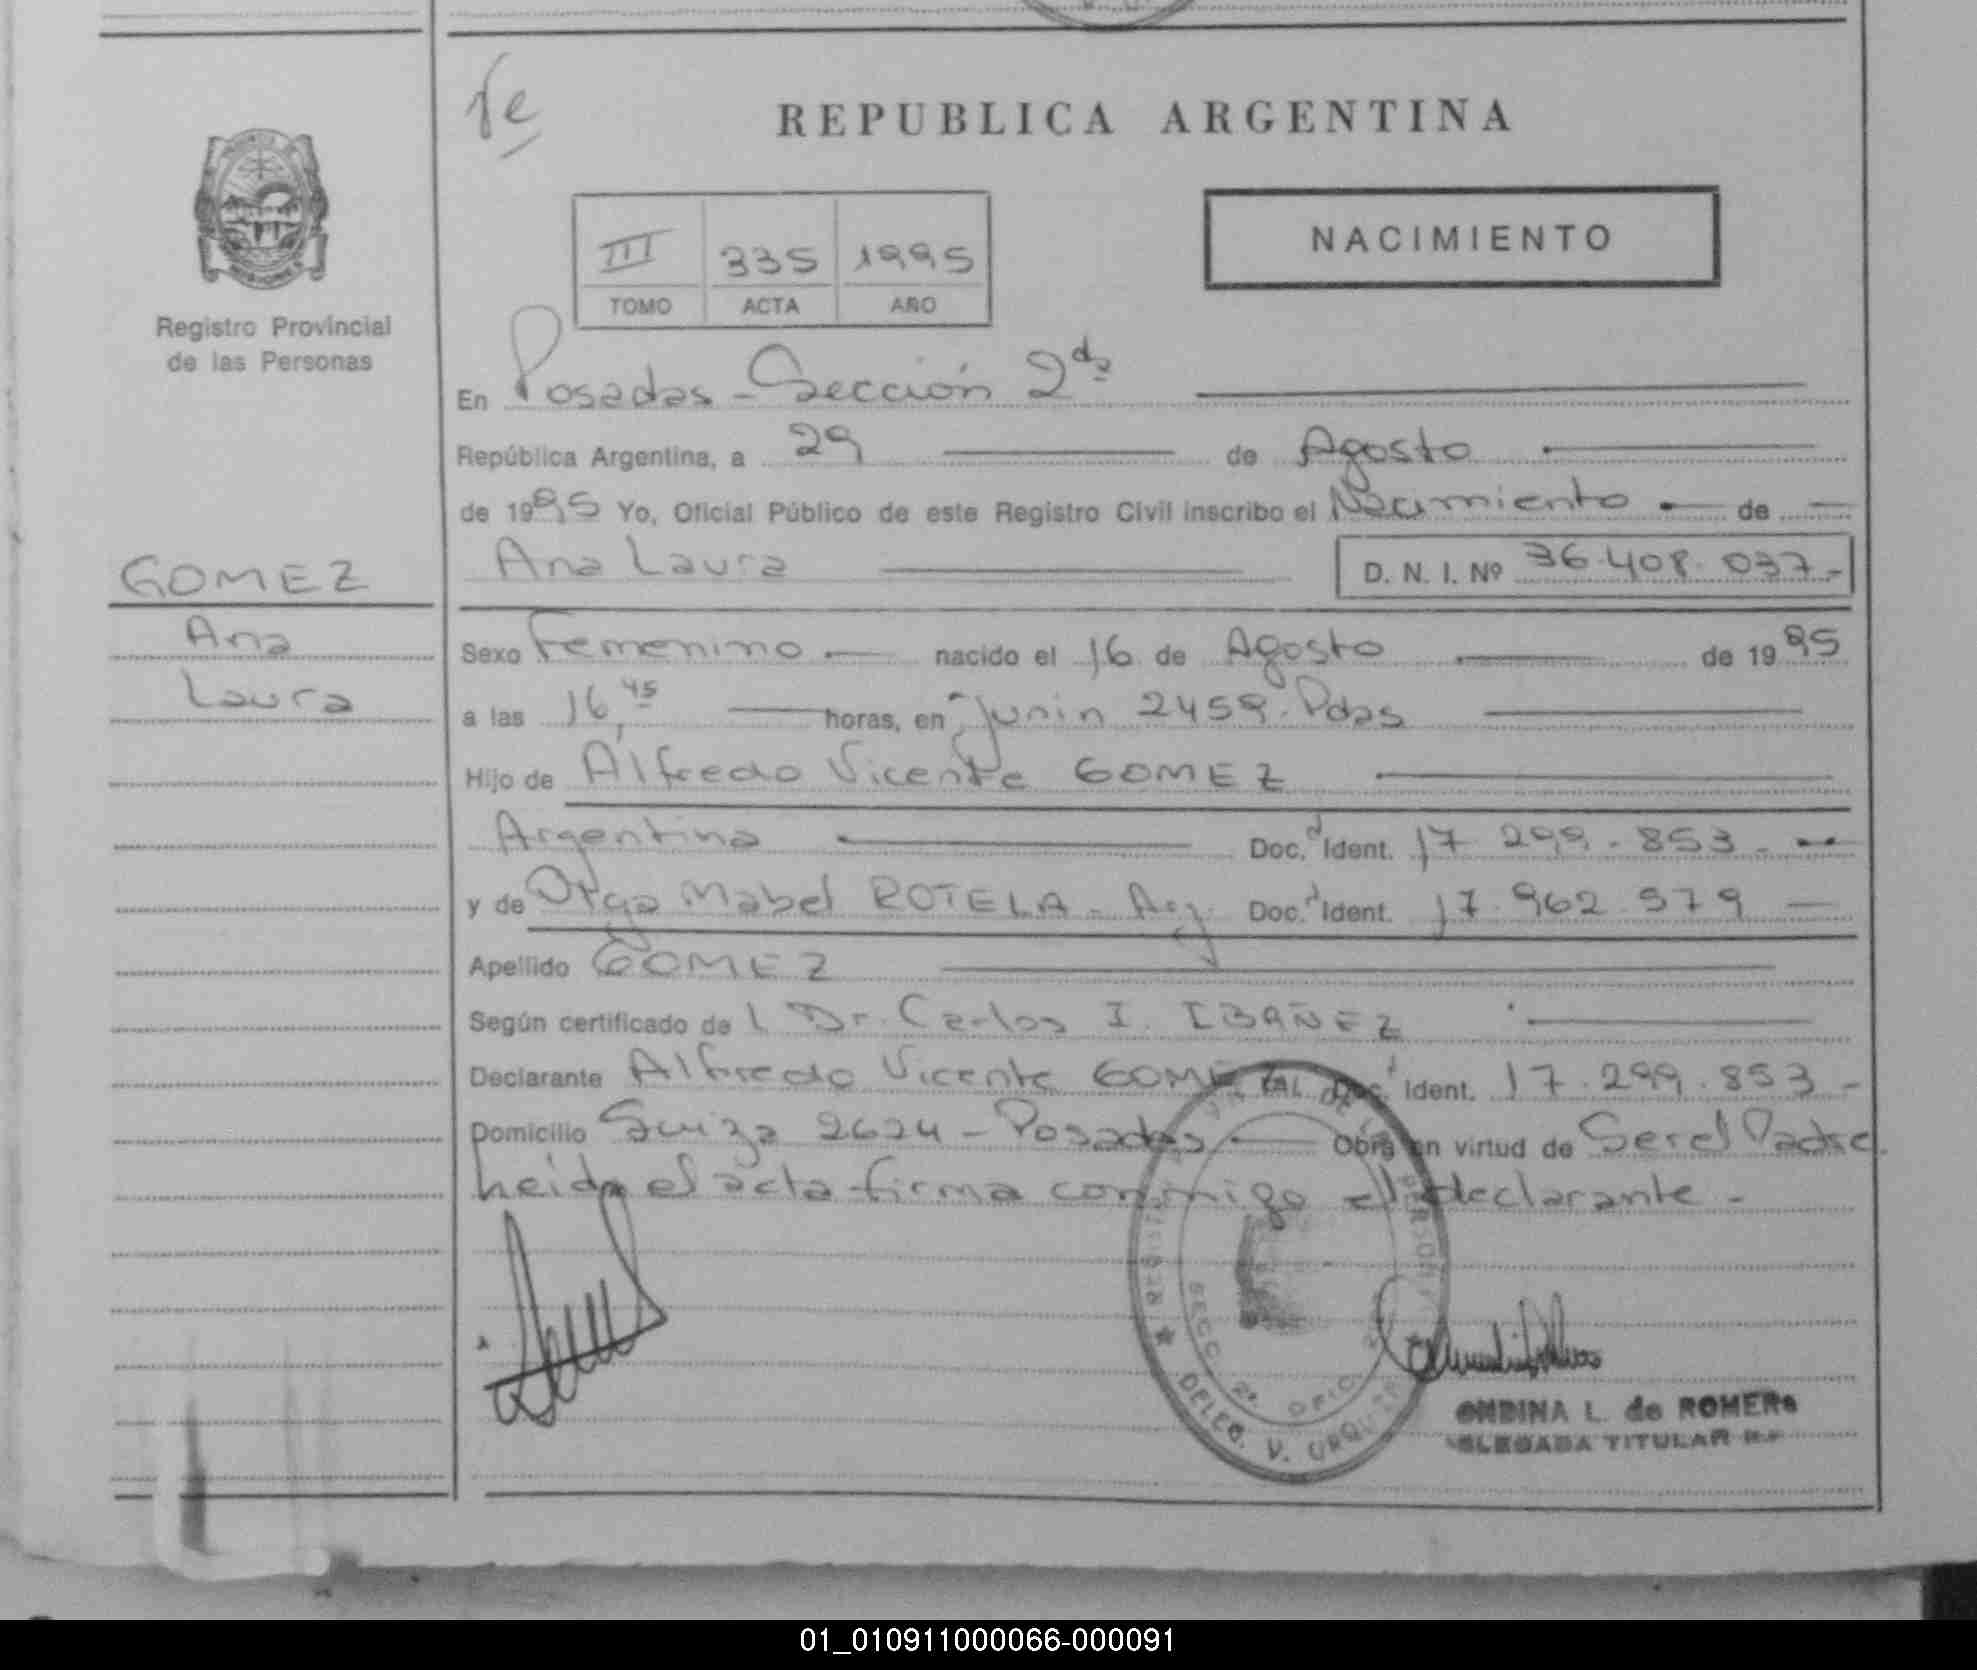 Te
REPUBLICA ARGENTINA
NACIMIENTO
III 335 1995
TOMO ACTA AÑO
Registro Provincial
de las Personas
En Posadas - Sección 2da
República Argentina, a 29 de Agosto
de 1995 Yo, Oficial Público de este Registro Civil inscribo el Nacimiento de
Ana Laura D. N. I. Nº 36.408.037.-
GOMEZ
Ana
Laura
Sexo Femenino nacido el 16 de Agosto de 1995
a las 16,45 horas, en Junin 2459. Pdas
Hijo de Alfredo Vicente GOMEZ
Argentina Doc. Ident. 17.299.853.-
y de Olga Mabel ROTELA - Arg. Doc. Ident. 17.962.579
Apellido GOMEZ
Según certificado de l Dr. Carlos I. IBAÑEZ
Declarante Alfredo Vicente GOMEZ Doc. Ident. 17.299.853-
Domicilio Suiza 2624 - Posadas Obra en virtud de Ser el Padre.
Leida el acta firma conmigo el declarante.-
SECC. 2ª OFIC.
DELEG. V. URQUIZA
ONDINA L. de ROMERO
DELEGADA TITULAR
01_010911000066-000091